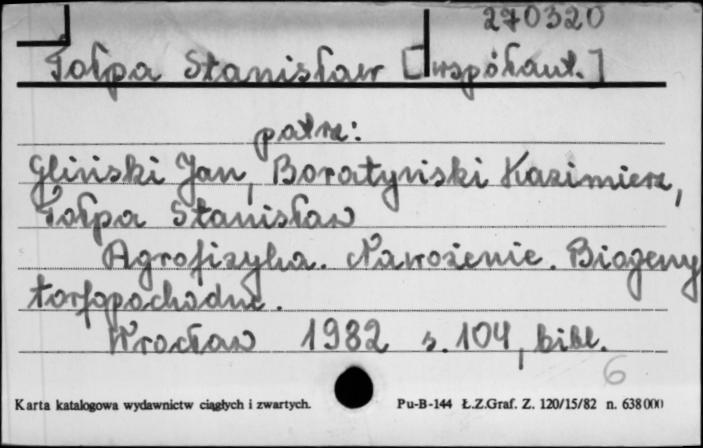 270320
Tołpa Stanisław [współaut.]
patrz:
Gliński Jan, Boratyński Kazimierz,
Tołpa Stanisław
Agrofizyka. Nawożenie. Biogeny
torfopochodne.
Wrocław 1982 s. 104, bibl.
6
Karta katalogowa wydawnictw ciągłych i zwartych. Pu-B-144 Ł.Z.Graf. Z. 120/15/82 n. 638000